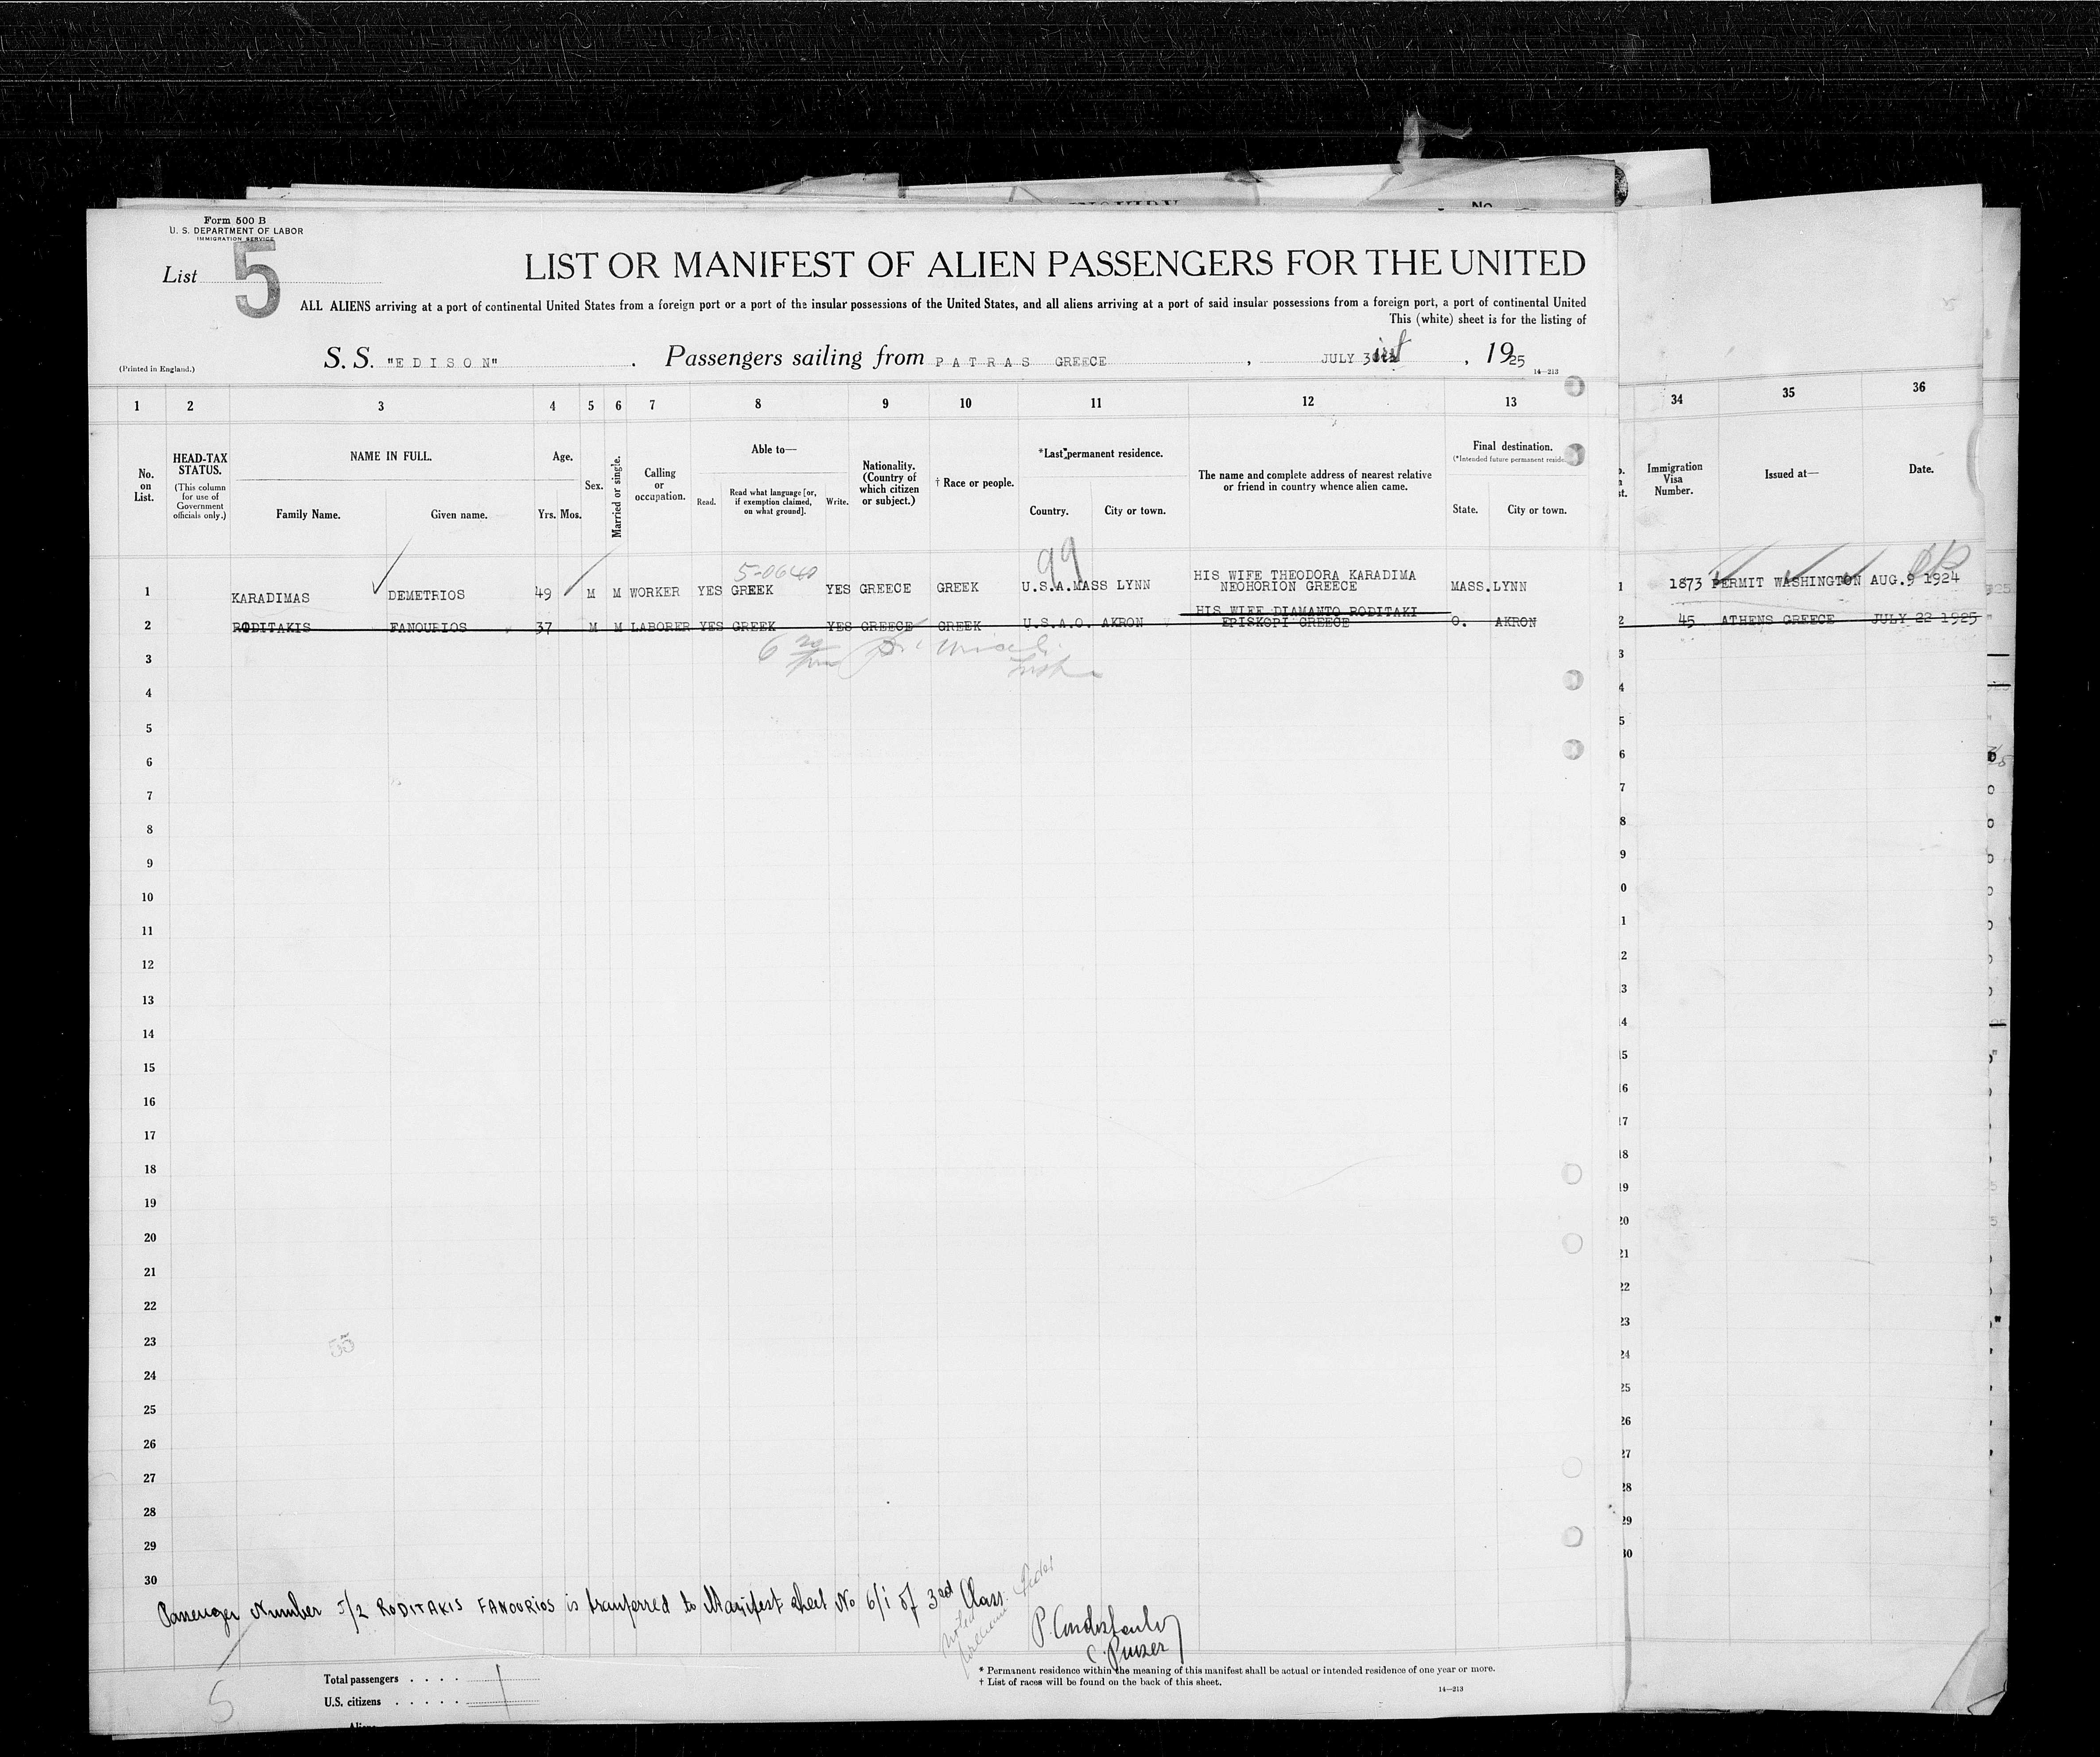 Form 500 B
U. S. DEPARTMENT OF LABOR
IMMIGRATION SERVICE
List 5
LIST OR MANIFEST OF ALIEN PASSENGERS FOR THE UNITED
ALL ALIENS arriving at a port of continental United States from a foreign port or a port of the insular possessions of the United States, and all aliens arriving at a port of said insular possessions from a foreign port, a port of continental United
This (white) sheet is for the listing of
(Printed in England.)
S. S. "EDISON" . Passengers sailing from PATRAS GREECE , JULY , 1925
14—213
1 2 3 4 5 6 7 8 9 10 11 12 13 34 35 36
No. on List.
HEAD-TAX STATUS.
(This column for use of Government officials only.)
NAME IN FULL.
Family Name. Given name.
Age.
Yrs. Mos.
Sex.
Married or single.
Calling or occupation.
Able to—
Read. Read what language [or, if exemption claimed, on what ground]. Write.
Nationality. (Country of which citizen or subject.)
† Race or people.
*Last permanent residence.
Country. City or town.
The name and complete address of nearest relative or friend in country whence alien came.
Final destination.
(*Intended future permanent reside
State. City or town.
Immigration Visa Number.
Issued at—
Date.
5-0640
99
HIS WIFE THEODORA KARADIMA
1 KARADIMAS DEMETRIOS 49 M M WORKER YES GREEK YES GREECE GREEK U.S.A. MASS LYNN NEOHORION GREECE MASS. LYNN 1 1873 PERMIT WASHINGTON AUG. 9 1924
HIS WIFE DIAMANTO RODITAKI
2 RODITAKIS FANOURIOS 37 M M LABORER YES GREEK YES GREECE GREEK U.S.A. O. AKRON EPISKOPI GREECE O. AKRON 2 45 ATHENS GREECE JULY 22 1925
3
4
5
6
7
8
9
10
11
12
13
14
15
16
17
18
19
20
21
22
23
24
25
26
27
28
29
30
55
Passenger Number 5/2 RODITAKIS FANOURIOS is tranferred to Manifest sheet No 6/1 of 3ed Class.
Purser
Total passengers . . . .
U.S. citizens . . . . .
Aliens
5
* Permanent residence within the meaning of this manifest shall be actual or intended residence of one year or more.
† List of races will be found on the back of this sheet.
14—213